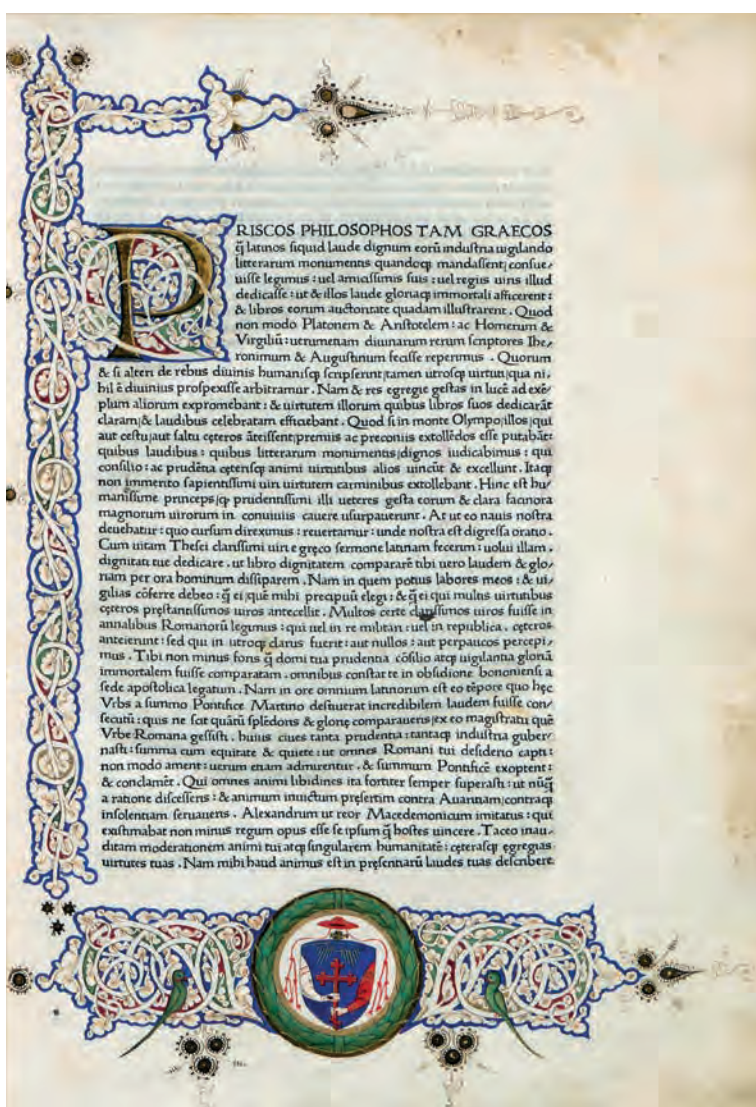 PRISCOS PHILOSOPHOS TAM GRAECOS
q̄ latinos siquid laude dignum eorū industria uigilando
litterarum monumentis quandoq; mandassent; consue/
uisse legimus : uel amicissimis suis : uel regiis uiris illud
dedicasse : ut & illos laude gloriaq; immortali afficerent :
& libros eorum auctoritate quadam illustrarent . Quod
non modo Platonem & Aristotelem : ac Homerum &
Virgiliū : uerumetiam diuinarum rerum scriptores Ihe/
ronimum & Augustinum fecisse reperimus . Quorum
& si alteri de rebus diuinis humanisq; scripserint; tamen utrosq; uirtuti; qua ni,
hil ē diuinius prospexisse arbitramur . Nam & res egregie gestas in lucē ad exē/
plum aliorum expromebant : & uirtutem illorum quibus libros suos dedicarāt
claram; & laudibus celebratam efficiebant . Quod si in monte Olympo; illos; qui
aut cestu; aut saltu cęteros āteissent; premiis ac preconiis extollēdos esse putabāt :
quibus laudibus : quibus litterarum monumentis; dignos iudicabimus : qui
consilio : ac prudētia cęterisq; animi uirtutibus alios uincūt & excellunt . Itaq;
non immerito sapientissimi uiri uirtutem carminibus extollebant . Hinc est hu/
manissime princeps; q; prudentissimi illi ueteres gesta eorum & clara facinora
magnorum uirorum in conuiuiis canere usurpauerunt . At ut eo nauis nostra
deuehatur : quo cursum direximus : reuertamur : unde nostra est digressa oratio .
Cum uitam Thesei clarissimi uiri e gręco sermone latinam fecerim : uolui illam ,
dignitati tue dedicare . ut libro dignitatem compararē tibi uero laudem & glo/
riam per ora hominum dissiparem . Nam in quem potius labores meos : & ui/
gilias cōferre debeo : q̄ ei; quē mihi precipuū elegi : & q̄ ei qui multis uirtutibus
cęteros pręstantissimos uiros antecellit . Multos certe clarissimos uiros fuisse in
annalibus Romanorū legimus : qui uel in re militari : uel in republica . cęteros
anteierunt : sed qui in utroq; clarus fuerit : aut nullos : aut perpaucos percepi/
mus . Tibi non minus foris q̄ domi tua prudentia cōsilio atq; uigilantia gloriā
immortalem fuisse comparatam . omnibus constat te in obsidione bononiensi a
sede apostolica legatum . Nam in ore omnium latinorum est eo tēpore quo hęc
Vrbs a summo Pontifice Martino destituerat incredibilem laudem fuisse con/
secutū : quis ne scit quātū splēdoris & glorię comparaueris; ex eo magistratu quē
Vrbe Romana gessisti . huius ciues tanta prudentia : tantaq; industria guber/
nasti : summa cum equitate & quiete : ut omnes Romani tui desiderio capti :
non modo ament : uerum etiam admirentur . & summum Pontificē exoptent :
& conclamēt . Qui omnes animi libidines ita fortiter semper superasti : ut nūq̄
a ratione discesseris : & animum inuictum pręsertim contra Auaritiam; contraq;
insolentiam seruaueris . Alexandrum ut reor Macedemonicum imitatus : qui
existimabat non minus regum opus esse se ipsum q̄ hostes uincere . Taceo inau/
ditam moderationem animi tui atq; singularem humanitatē : cęterasq; egregias
uirtutes tuas . Nam mihi haud animus est in pręsentiarū laudes tuas describere